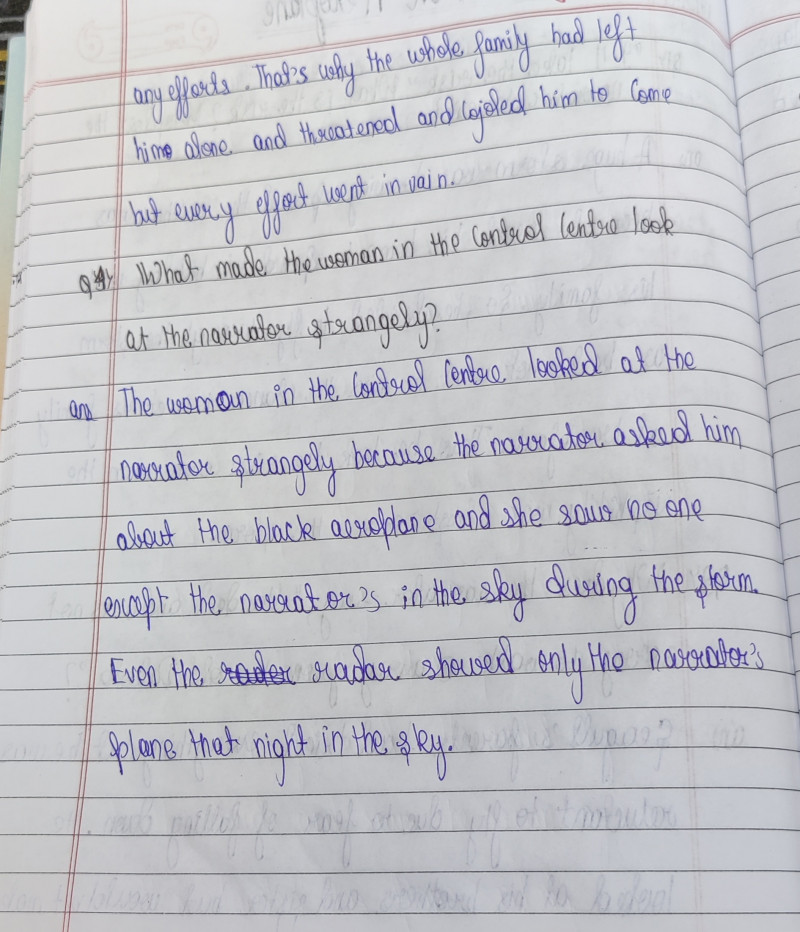 any efforts. That's why the whole family had left
him alone and threatened and cojoled him to Come
but every effort went in vain.
Q4 What made the woman in the Control Centre look
at the narrator strangely?
ans The woman in the Control Centre looked at the
narrator strangely because the narrator asked him
about the black aeroplane and she saw no one
except the narrator's in the sky during the storm.
Even the radar showed only the narrator's
plane that night in the sky.